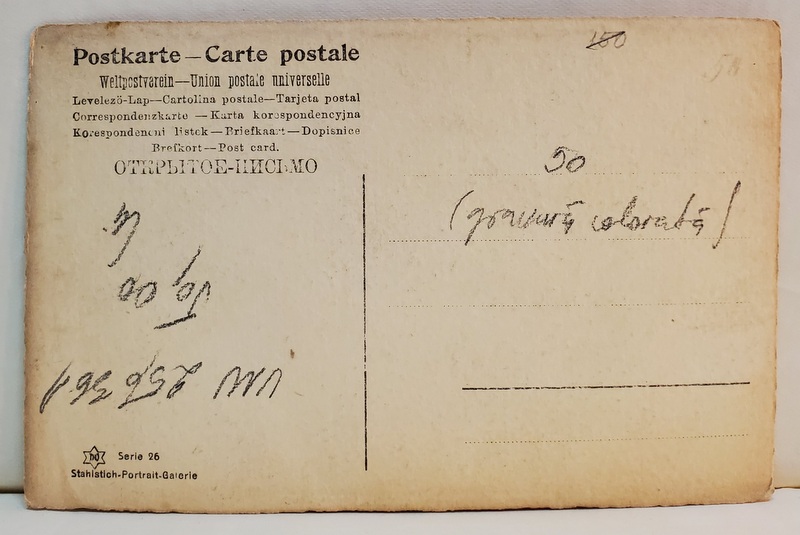 Postkarte — Carte postale
150
Weltpostverein—Union postale universelle
Levelező-Lap—Cartolina postale—Tarjeta postal
Correspondenzkarte — Karta korespondencyjna
Korespondencni listek — Briefkaart — Dopisnice
Brefkort — Post card.
ОТКРЫТОЕ-ПИСЬМО
50
(gravură colorată)
Serie 26
Stahlstich-Portrait-Galerie